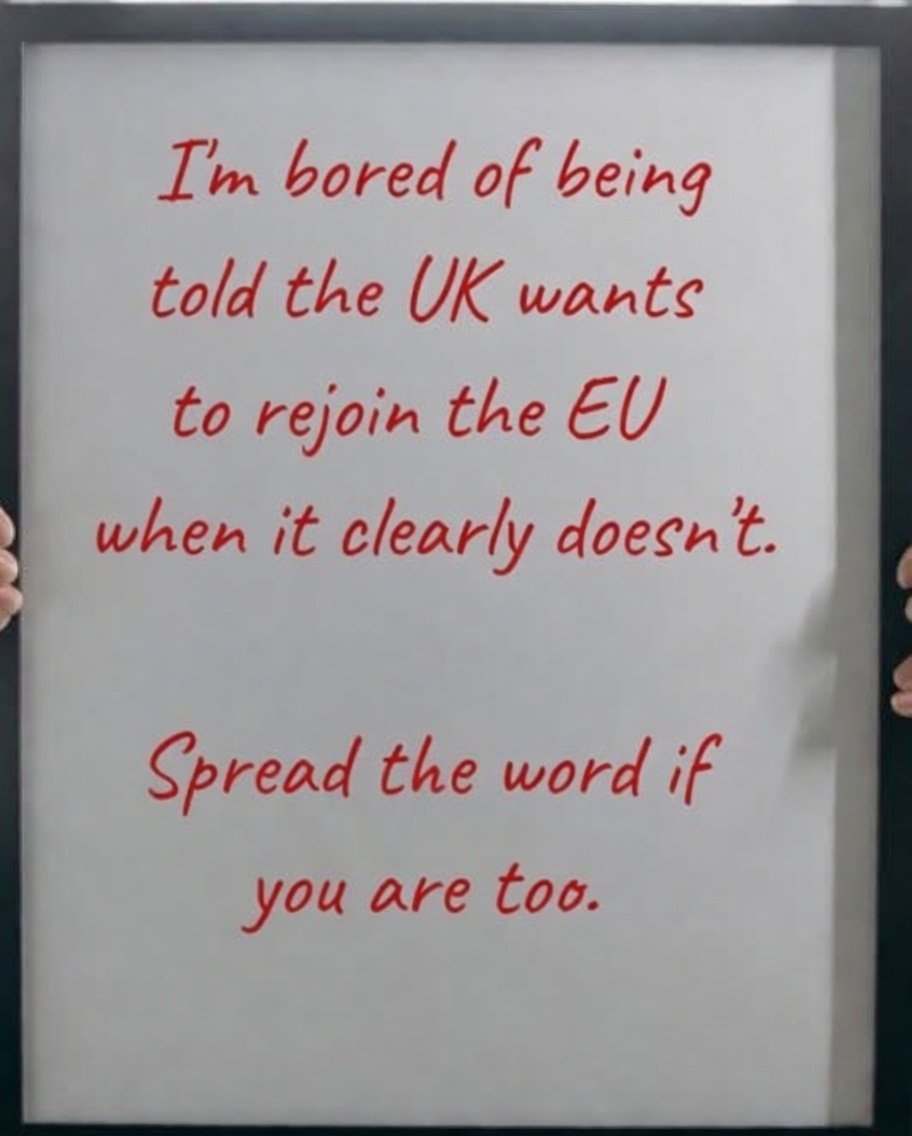 I'm bored of being
told the UK wants
to rejoin the EU
when it clearly doesn't.
Spread the word if
you are too.